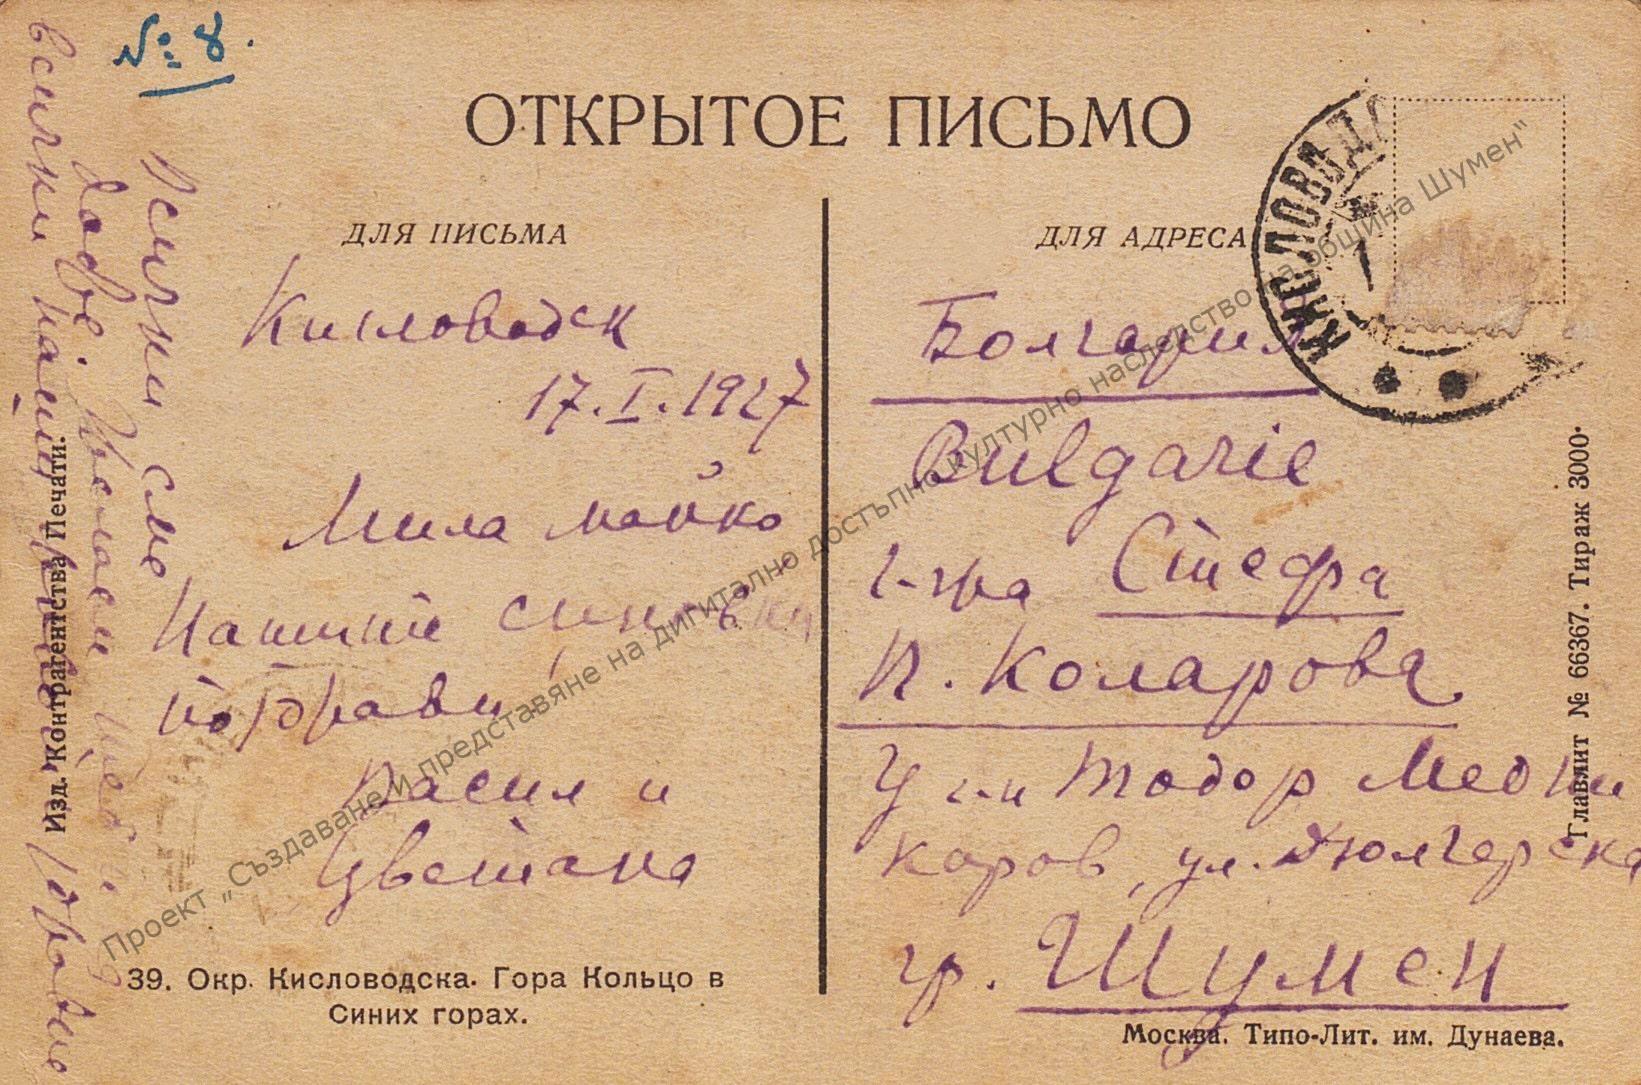 № 8.
ОТКРЫТОЕ ПИСЬМО
ДЛЯ ПИСЬМА
Кисловодск
17.I.1927
Мила майко
Нашите синовни
поздрави
Васил и
Цветана
Всички сме
добре. Желаем
всички
здраве
39. Окр. Кисловодска. Гора Кольцо в
Синих горах.
Изд. Контрагентства Печати.
ДЛЯ АДРЕСА
КИСЛОВОД
Болгария
Bulgarie
г-жа Стефа
П. Коларова
У г-н Тодор Медни
каров, ул. Дюлгерска
гр. Шумен
Москва. Типо-Лит. им. Дунаева.
Главлит № 66367. Тираж 3000.
Проект „Създаване и представяне на дигитално достъпно културно наследство на община Шумен"